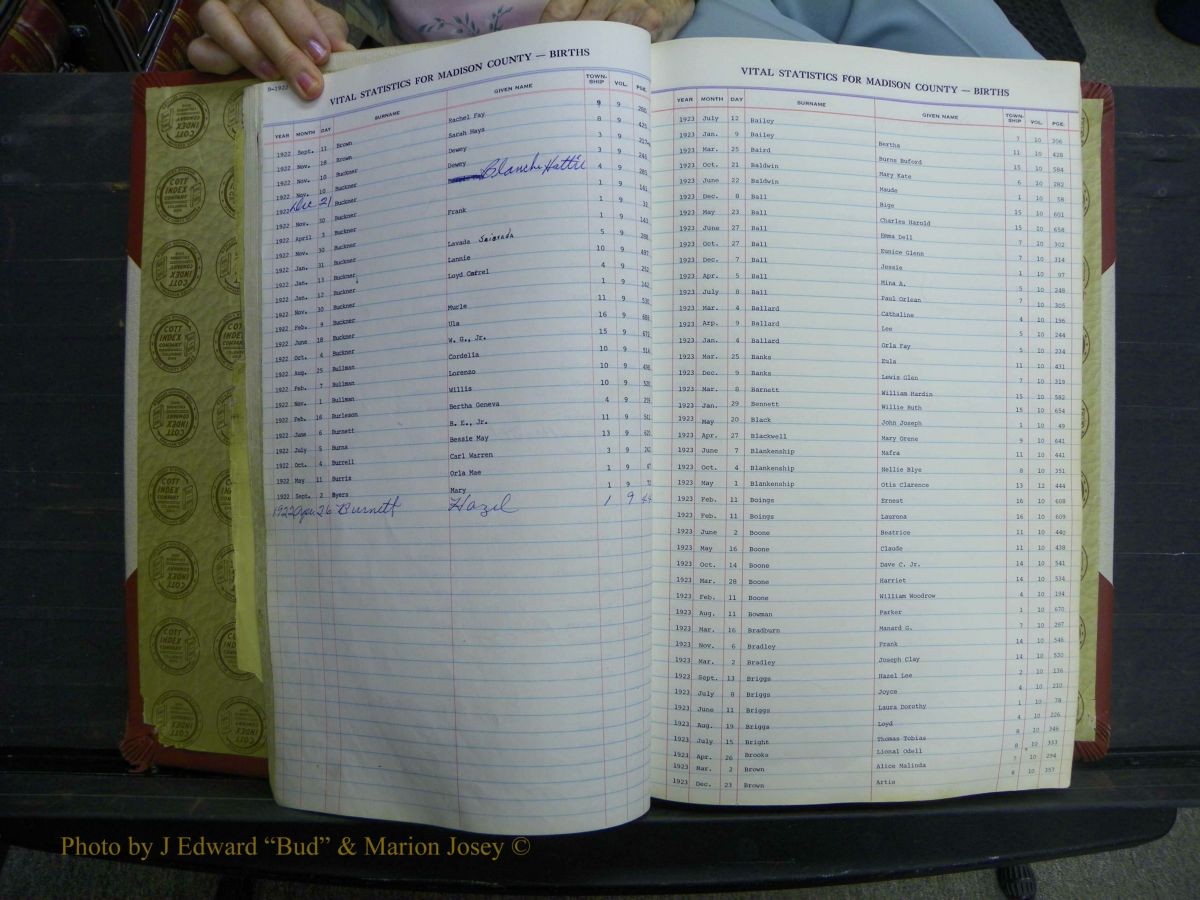 B-1922
VITAL STATISTICS FOR MADISON COUNTY — BIRTHS
YEAR MONTH DAY SURNAME GIVEN NAME TOWN-SHIP VOL. PGE.
1922 Sept. 11 Brown Rachel Fay 9 9 260
1922 Nov. 18 Brown Sarah Hays 8 9 425
1922 Nov. 10 Buckner Dewey 3 9
1922 Nov. 10 Buckner Dewey 3 9 246
1922 Dec 21 Buckner Blanche Hattie 4 9 285
1922 Nov. 30 Buckner 1 9 141
1922 April 3 Buckner Frank 1 9 32
1922 Nov. 30 Buckner 1 9 143
1922 Jan. 31 Buckner Lavada 5 9 288
1922 Jan. 13 Buckner Lannie 10 9 497
1922 Jan. 12 Buckner Loyd Carrel 4 9 252
1922 Nov. 30 Buckner 1 9 142
1922 Feb. 9 Buckner Murle 11 9 530
1922 June 18 Buckner Ula 16 9 688
1922 Oct. 4 Buckner W. G., Jr. 15 9 672
1922 Aug. 25 Bullman Cordelia 10 9 514
1922 Feb. 7 Bullman Lorenzo 10 9 498
1922 Nov. 1 Bullman Willis 10 9 520
1922 Feb. 16 Burleson Bertha Geneva 4 9 259
1922 June 6 Burnett B. E., Jr. 11 9 541
1922 July 5 Burns Bessie May 13 9 620
1922 Oct. 4 Burrell Carl Warren 3 9 242
1922 May 11 Burris Orla Mae 1 9 67
1922 Sept. 2 Byers Mary 1 9 72
1922 Apr. 26 Burnett Hazel 1 9
VITAL STATISTICS FOR MADISON COUNTY — BIRTHS
YEAR MONTH DAY SURNAME GIVEN NAME TOWN-SHIP VOL. PGE.
1923 July 12 Bailey Bertha 7 10 306
1923 Jan. 9 Bailey Burns Buford 11 10 428
1923 Mar. 25 Baird Mary Kate 15 10 584
1923 Oct. 21 Baldwin Maude 6 10 282
1923 June 22 Baldwin Bige 1 10 58
1923 Dec. 8 Ball Charles Harold 15 10 601
1923 May 23 Ball Emma Dell 15 10 658
1923 June 27 Ball Eunice Glenn 7 10 302
1923 Oct. 27 Ball Jessie 7 10 314
1923 Dec. 7 Ball Mina A. 1 10 97
1923 Apr. 5 Ball Paul Orlean 5 10 248
1923 July 8 Ball Cathaline 7 10 305
1923 Mar. 4 Ballard Lee 4 10 196
1923 Arp. 9 Ballard Orla Fay 5 10 244
1923 Jan. 4 Ballard Eula 5 10 234
1923 Mar. 25 Banks Lewis Glen 11 10 431
1923 Dec. 9 Banks William Hardin 7 10 319
1923 Mar. 8 Barnett Willie Ruth 15 10 582
1923 Jan. 29 Bennett John Joseph 15 10 654
1923 May 20 Black Mary Grene 1 10 49
1923 Apr. 27 Blackwell Mafra 9 10 641
1923 June 7 Blankenship Nellie Blye 11 10 441
1923 Oct. 4 Blankenship Otis Clarence 8 10 351
1923 May 1 Blankenship Ernest 13 12 444
1923 Feb. 11 Boings Laurona 16 10 608
1923 Feb. 11 Boings Beatrice 16 10 609
1923 June 2 Boone Claude 11 10 440
1923 May 16 Boone Dave C. Jr. 11 10 438
1923 Oct. 14 Boone Harriet 14 10 541
1923 Mar. 28 Boone William Woodrow 14 10 534
1923 Feb. 11 Boone Parker 4 10 194
1923 Aug. 11 Bowman Manard G. 1 10 670
1923 Mar. 16 Bradburn Frank 7 10 297
1923 Nov. 6 Bradley Joseph Clay 14 10 546
1923 Mar. 2 Bradley Hazel Lee 14 10 530
1923 Sept. 13 Briggs Joyce 2 10 136
1923 July 8 Briggs Laura Dorothy 4 10 210
1923 June 11 Briggs Loyd 1 10 78
1923 Aug. 19 Briggs Thomas Tobias 4 10 226
1923 July 15 Bright Lional Odell 8 10 346
1923 Apr. 26 Brooks Alice Malinda 8 10 333
1923 Mar. 2 Brown Artis 7 10 294
1923 Dec. 23 Brown 8 10 357
COTT INDEX COMPANY
Photo by J Edward “Bud” & Marion Josey ©